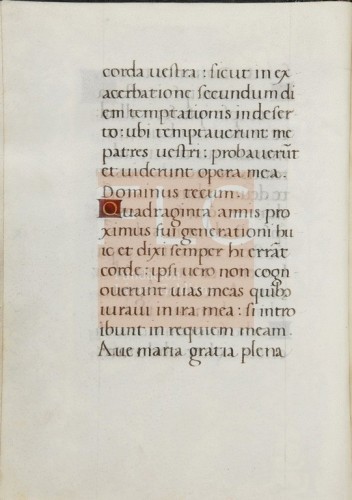 corda uestra : sicut in ex
acerbatione secundum di
em temptationis in deser
to : ubi temptauerunt me
patres uestri : probauerūt
et uiderunt opera mea .
Dominus tecum .
Quadraginta annis pro
ximus fui generationi hu
ic et dixi semper hi errāt
corde : ipsi uero non cogn
ouerunt uias meas quibꝰ
iuraui in ira mea : si intro
ibunt in requiem meam .
Aue maria gratia plena